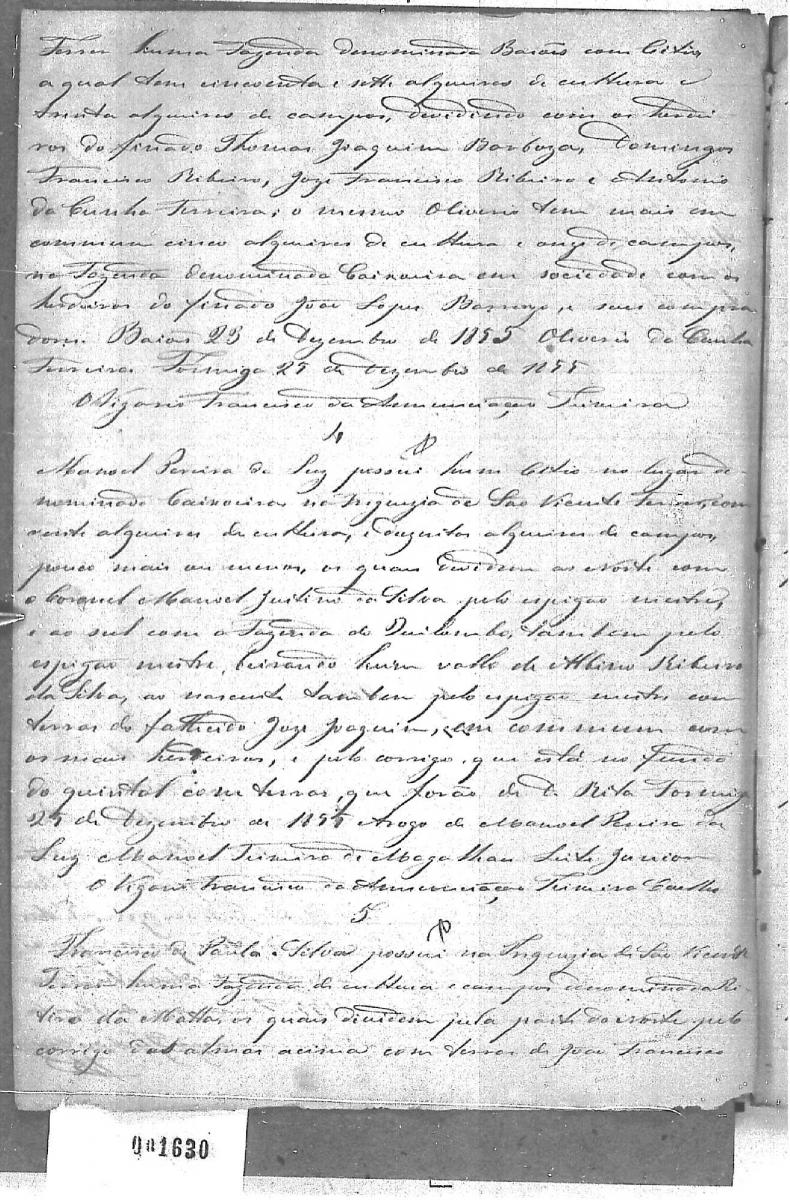 Ferrer huma Fazenda denominada Baiões com Citio,
a qual tem cincoenta e sette alqueires de cultura e
trinta alqueires de campos, devidindo com os herdei
ros do finado Thomas Joaquim Barboza, Domingos
Francisco Ribeiro, Joze Francisco Ribeiro e Antonio
da Cunha Ferreira; o mesmo Oliverio tem mais em
commum cinco alqueires de cultura e onze de campos,
na Fazenda denominada Caixoeira em sociedade com os
herdeiros do finado João Lopes e seus compra
dores. Baiões 23 de Dezembro de 1855 Oliverio da Cunha
Ferreira Formiga 25 de Dezembro de 1855
O Vigario Francisco da Annunciação Teixeira
4
Manoel Pereira da Luz possui hum Citio no lugar de
nominado Caixoeira, na Freguezia de São Vicente Ferrer, com
vinte alqueires de cultura, e duzentos alqueires de campos,
pouco mais ou menos, os quaes devidem ao Norte com
o Coronel Manoel Justino da Silva pelo espigão mestre,
e ao sul com a Fazenda do Quilombo, tambem pelo
espigão mestre, beirando hum vallo de Albino Ribeiro
da Silva, ao nascente tambem pelo espigão mestre com
terras do fallecido Joze Joaquim, em commum com
os mais herdeiros, e pelo corrigo, que está no fundo
do quintal com terras, que forão de D. Rita Formiga
25 de Dezembro de 1855 Arogo de Manoel Pereira da
Luz Manoel Teixeira de Magalhães Leite Junior
O Vigario Francisco da Annunciação Teixeira Coelho
5
Francisco de Paula e Silva possui na Freguezia de São Vicente
Ferrer huma Fazenda de cultura e campos denominada Re
tiro da Matta, os quaes devidem pela parte do Norte pelo
corrigo das almas acima com terras de João Francisco
001630